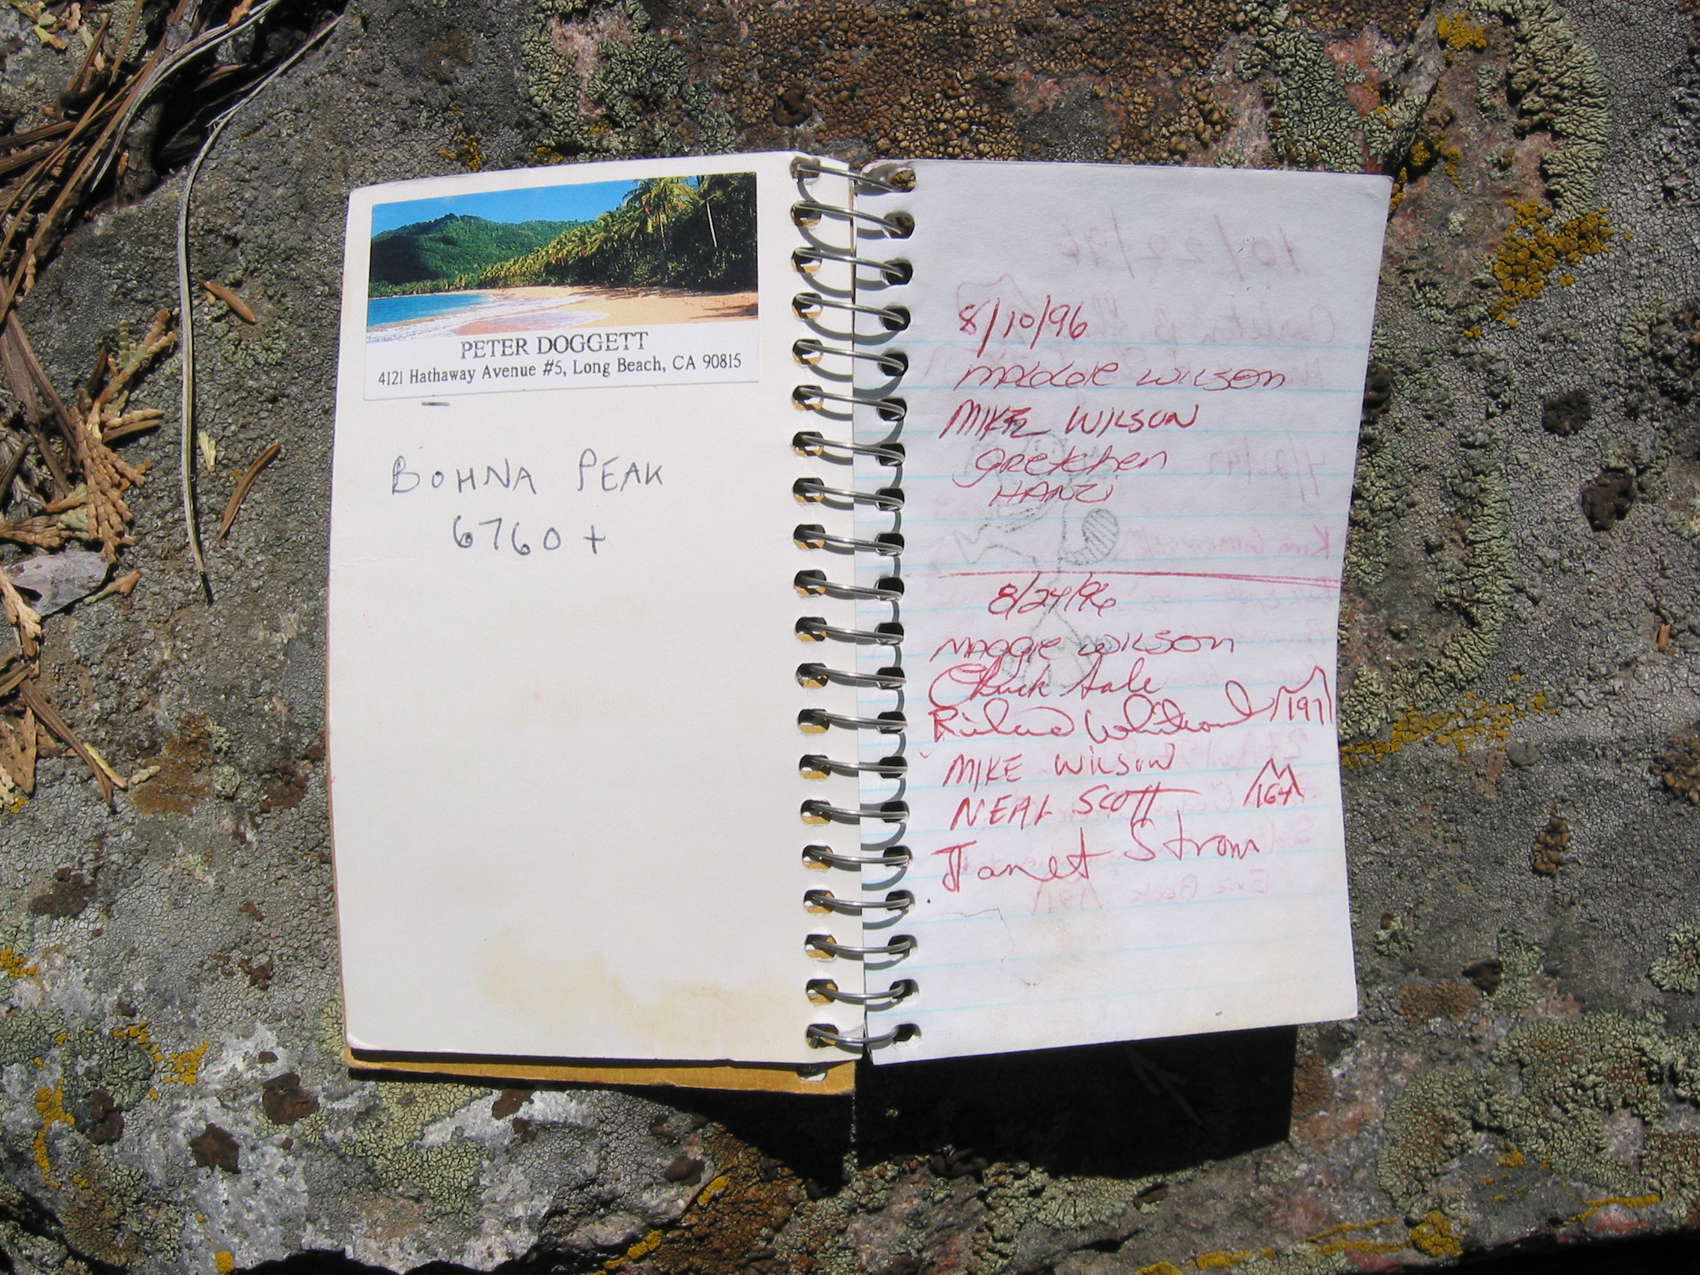 PETER DOGGETT
4121 Hathaway Avenue #5, Long Beach, CA 90815
BOHNA PEAK
6760+
10/22/96
8/10/96
MAGGIE WILSON
MIKE WILSON
Gretchen
HANZI
8/24/96
MAGGIE WILSON
Chuck
Richard
1971
MIKE WILSON
NEAL SCOTT
164
Janet Strom